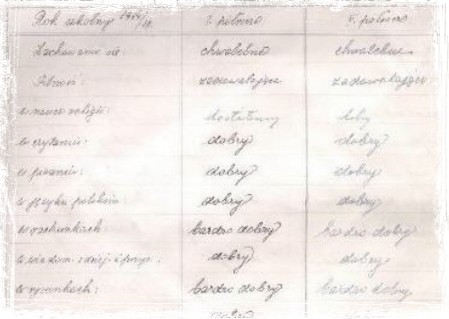 Rok szkolny 1917/18. I. półrocze II. półrocze
Zachowanie się: chwalebne chwalebne
Pilność: zadowalające zadowalające
w nauce religii: dostateczny dobry
w czytaniu: dobry dobry
w pisaniu: dobry dobry
w języku polskim dobry dobry
w rachunkach: bardzo dobry bardzo dobry
w wiadom. z dziej. i przyr. dobry dobry
w rysunkach: bardzo dobry bardzo dobry
dobry